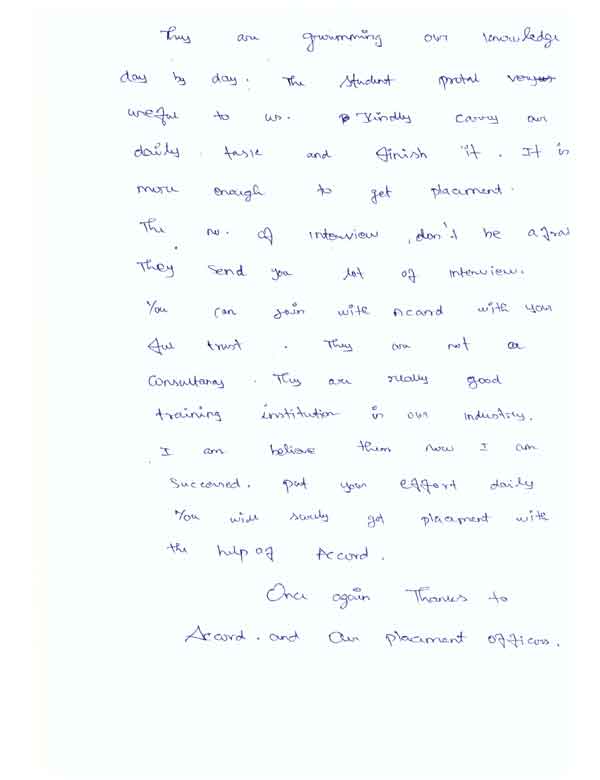 They are grumming our knowledge
day by day. The student protal very
useful to us. Kindly carry our
daily task and finish it. It is
more enough to get placement.
The no. of interview, don't be afrai
They send you lot of interview.
You can join with Accord with your
ful trust. They are not a
Consultancy. They are really good
training institution in our industry.
I am believe them now I am
Succeored. put your effort daily
You will surely get placement with
the help of Accord.
Once again Thanks to
Accord. and Our placement officers.